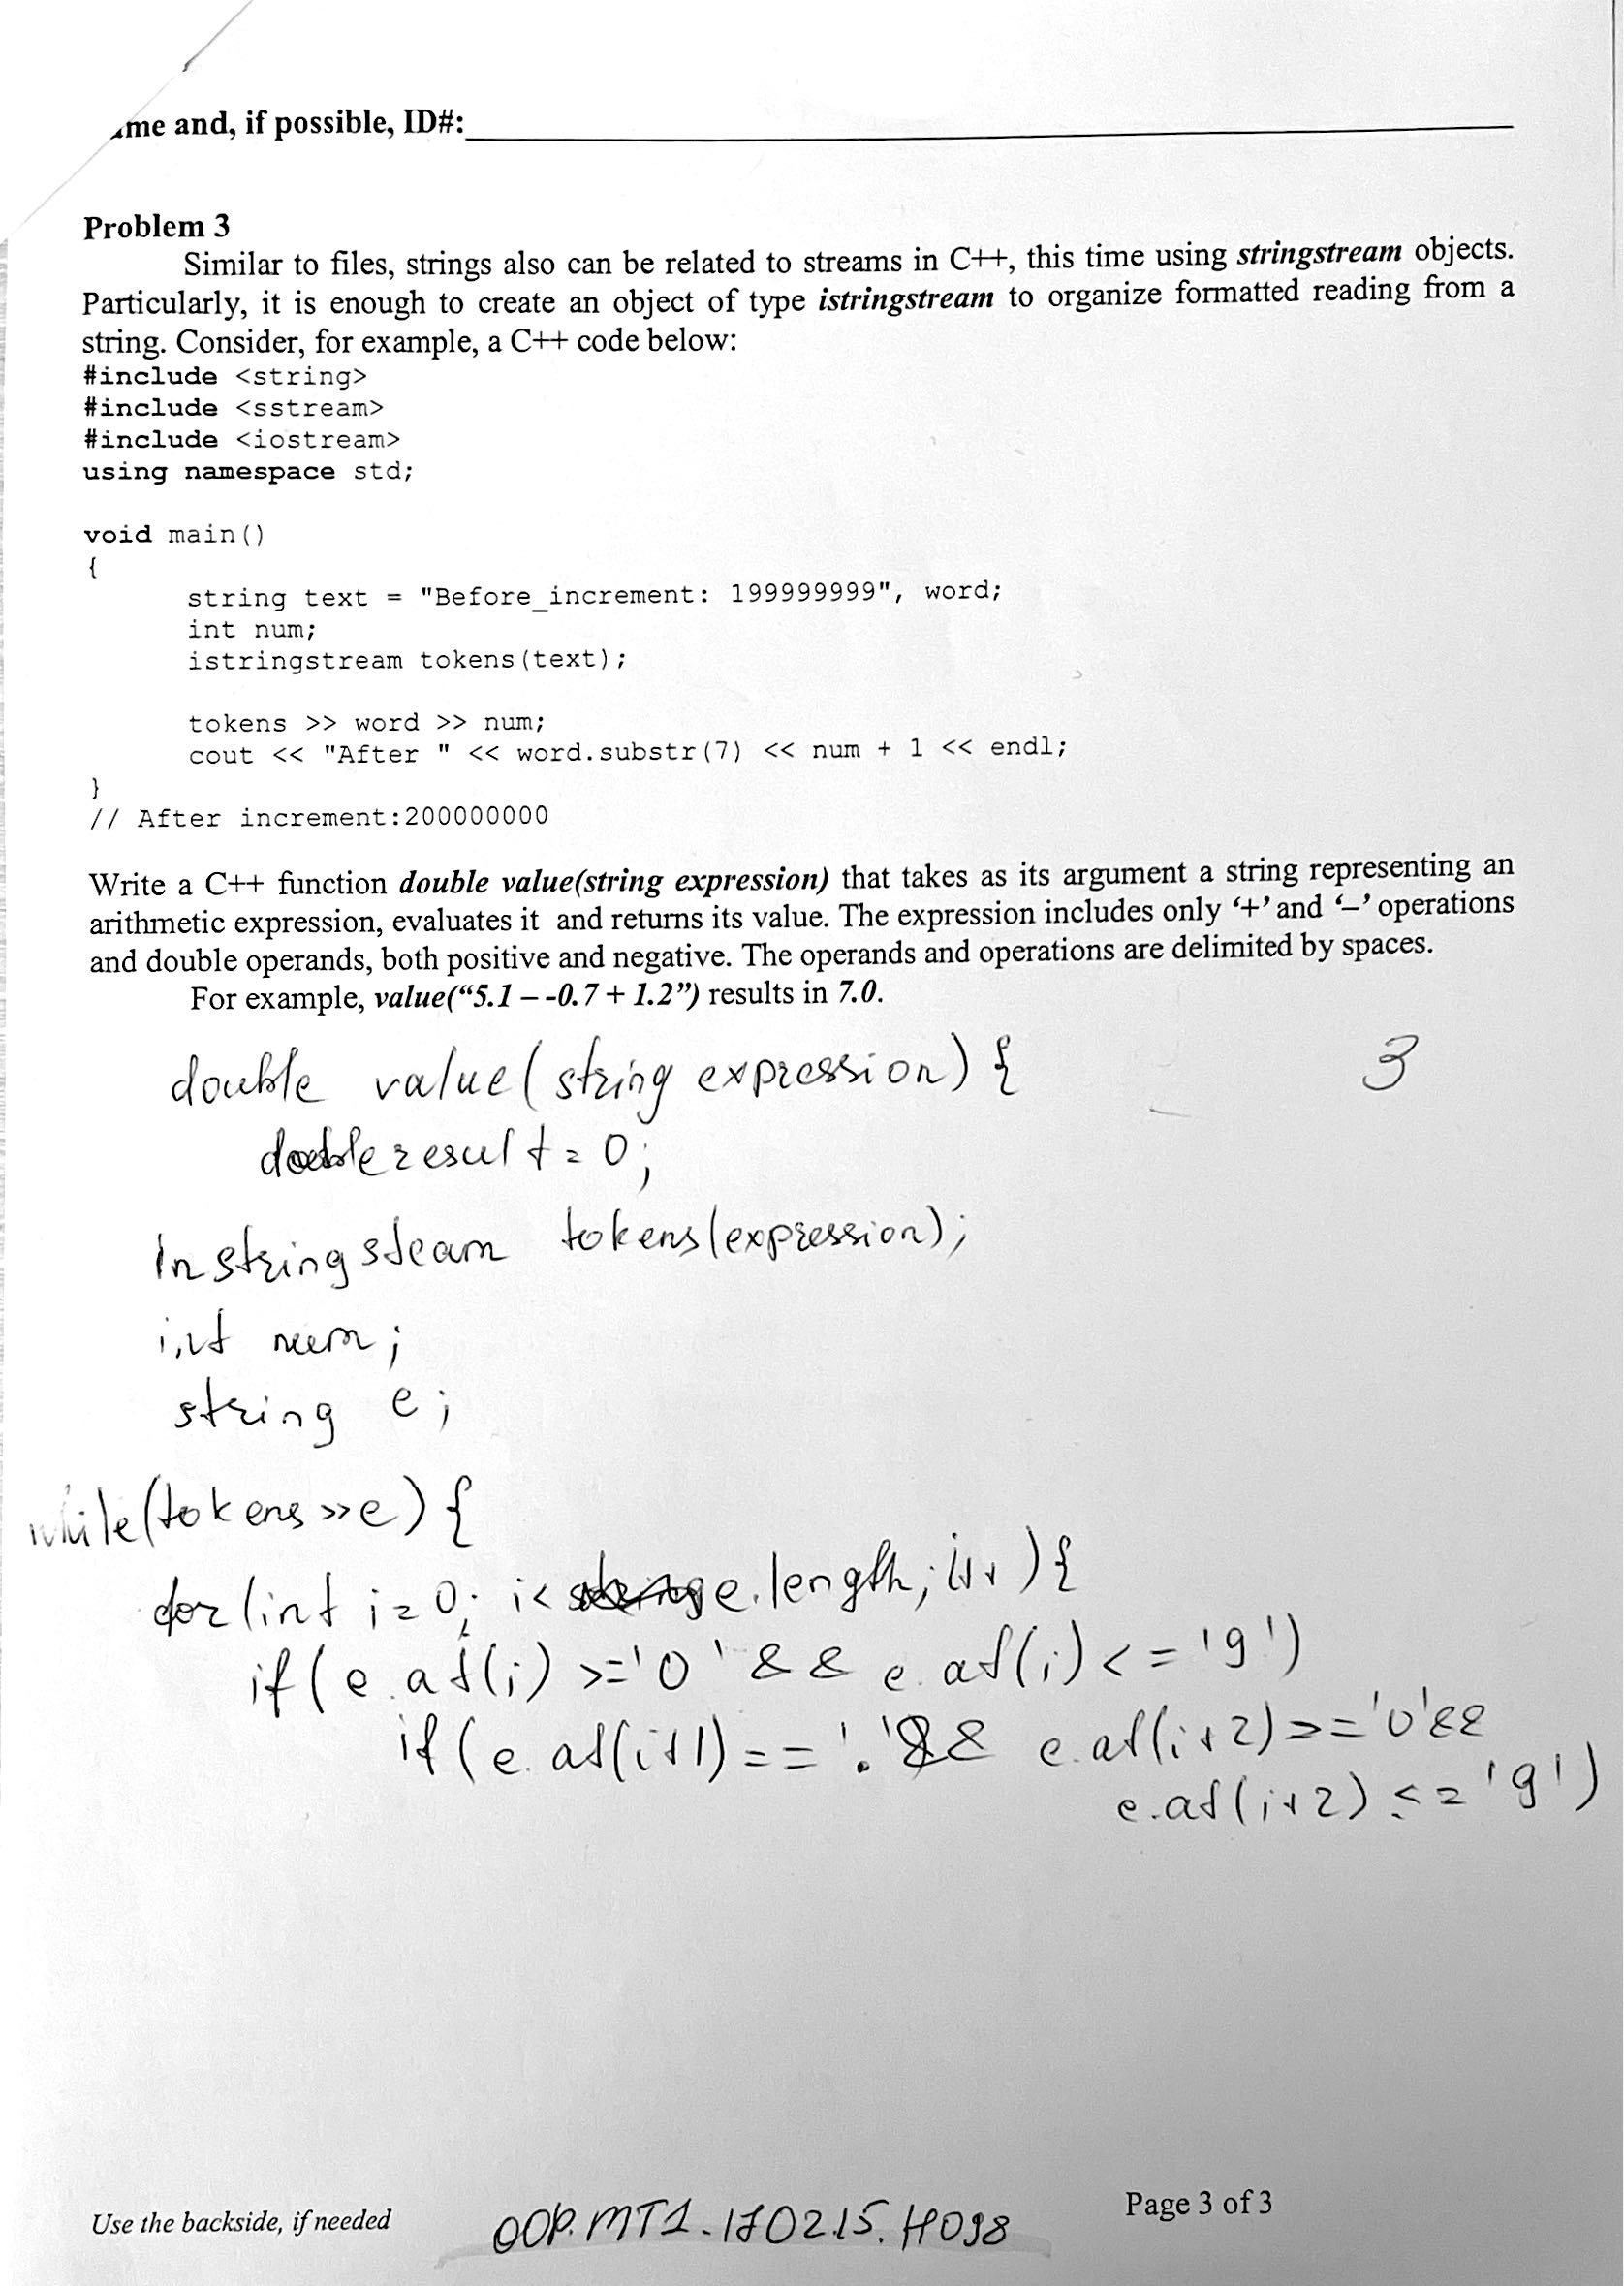 me and, if possible, ID#:
Problem 3
Similar to files, strings also can be related to streams in C++, this time using stringstream objects.
Particularly, it is enough to create an object of type istringstream to organize formatted reading from a
string. Consider, for example, a C++ code below:
#include <string>
#include <sstream>
#include <iostream>
using namespace std;
void main()
{
string text = "Before_increment: 199999999", word;
int num;
istringstream tokens(text);
tokens >> word >> num;
cout << "After " << word.substr(7) << num + 1 << endl;
}
// After increment:200000000
Write a C++ function double value(string expression) that takes as its argument a string representing an
arithmetic expression, evaluates it and returns its value. The expression includes only ‘+’ and ‘–’ operations
and double operands, both positive and negative. The operands and operations are delimited by spaces.
For example, value(“5.1 – -0.7 + 1.2”) results in 7.0.
double value(string expression) { 3
double result = 0;
Instringsteam tokens(expression);
int num;
string e;
while(tokens >> e) {
for(int i=0; i< e.length; i++){
if(e.at(i) >='0' && e.at(i) <= '9')
if(e.at(i+1) == '.' && e.at(i+2) >= '0' &&
e.at(i+2) <= '9')
Use the backside, if needed OOP.MT1.170215.H098 Page 3 of 3